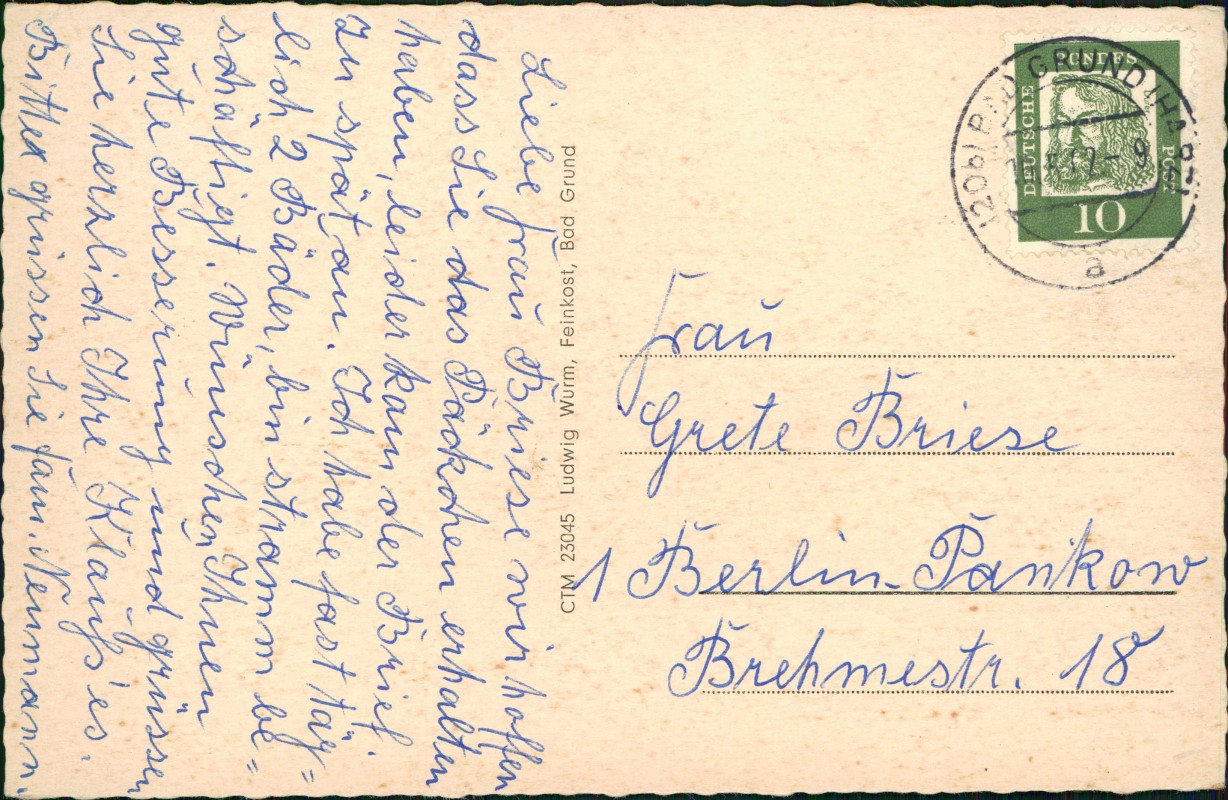 Liebe Frau Briese wir hoffen
dass Sie das Päckchen erhalten
haben, leider kam der Brief
zu spät an. Ich habe fast täg=
lich 2 Bäder, bin stramm be=
schäftigt. Wünschen Ihnen
gute Besserung und grüssen
Sie herzlich Ihre Klauß'es.
Bitte grüssen Sie Fam. Neumann.
CTM 23045 Ludwig Wurm, Feinkost, Bad Grund
DEUTSCHE BUNDESPOST
10
(20b) BAD GRUND (HARZ)
a
Frau
Grete Briese
1 Berlin-Pankow
Brehmestr. 18